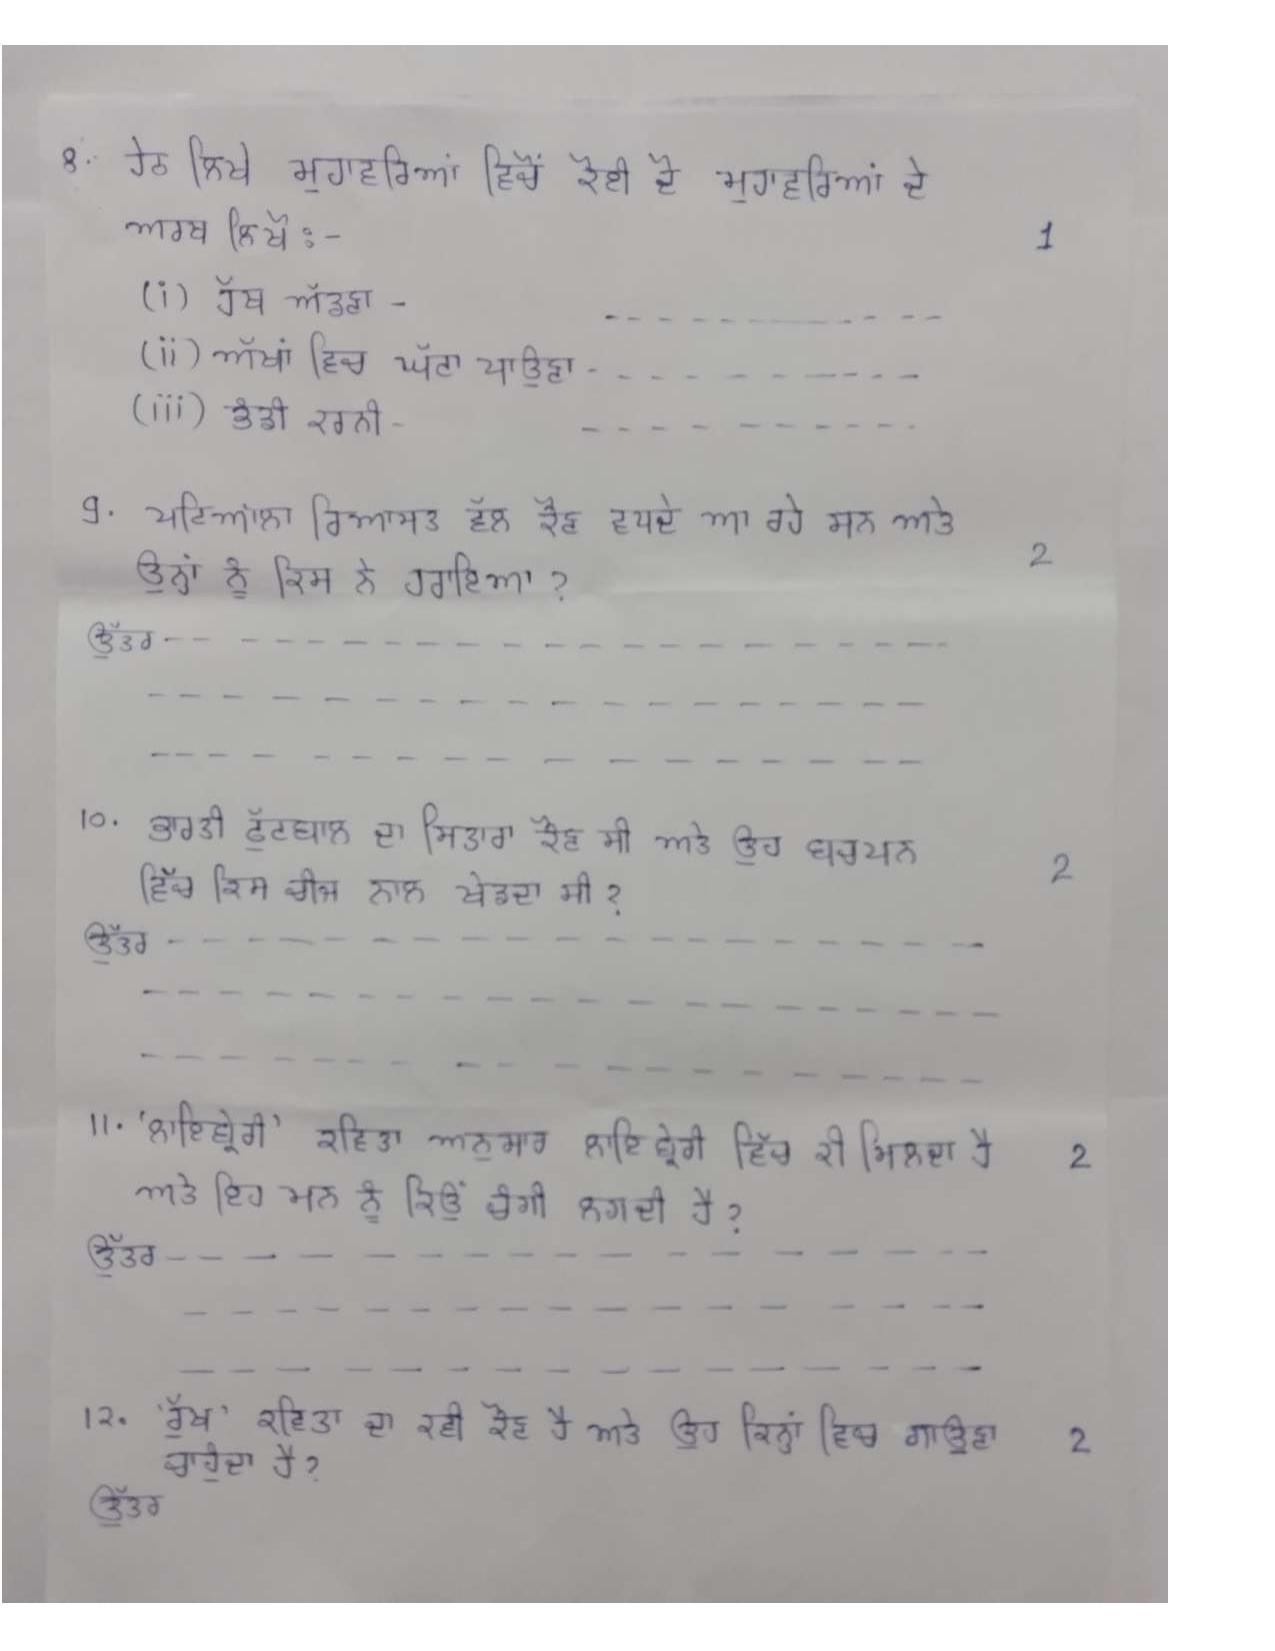 8. ਹੇਠ ਲਿਖੇ ਮੁਹਾਵਰਿਆਂ ਵਿਚੋਂ ਕੋਈ ਦੋ ਮੁਹਾਵਰਿਆਂ ਦੇ
ਅਰਥ ਲਿਖੋ :-
1
(i) ਹੱਥ ਅੱਡਣਾ -
(ii) ਅੱਖਾਂ ਵਿਚ ਘੱਟਾ ਪਾਉਣਾ -
(iii) ਭੰਡੀ ਕਰਨੀ -
9. ਪਟਿਆਲਾ ਰਿਆਸਤ ਵੱਲ ਕੌਣ ਵਧਦੇ ਆ ਰਹੇ ਸਨ ਅਤੇ
ਉਨ੍ਹਾਂ ਨੂੰ ਕਿਸ ਨੇ ਹਰਾਇਆ ?
2
ਉੱਤਰ
10. ਭਾਰਤੀ ਫੁੱਟਬਾਲ ਦਾ ਸਿਤਾਰਾ ਕੌਣ ਸੀ ਅਤੇ ਉਹ ਬਚਪਨ
ਵਿੱਚ ਕਿਸ ਚੀਜ ਨਾਲ ਖੇਡਦਾ ਸੀ ?
2
ਉੱਤਰ
11. 'ਲਾਇਬ੍ਰੇਰੀ' ਕਵਿਤਾ ਅਨੁਸਾਰ ਲਾਇਬ੍ਰੇਰੀ ਵਿੱਚ ਕੀ ਮਿਲਦਾ ਹੈ 2
ਅਤੇ ਇਹ ਮਨ ਨੂੰ ਕਿਉਂ ਚੰਗੀ ਲਗਦੀ ਹੈ ?
ਉੱਤਰ
12. 'ਰੁੱਖ' ਕਵਿਤਾ ਦਾ ਕਵੀ ਕੌਣ ਹੈ ਅਤੇ ਉਹ ਕਿਨ੍ਹਾਂ ਵਿਚ ਗਾਉਣਾ 2
ਚਾਹੁੰਦਾ ਹੈ ?
ਉੱਤਰ